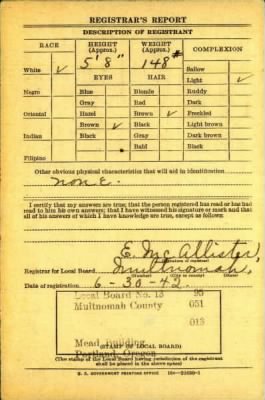 REGISTRAR'S REPORT
DESCRIPTION OF REGISTRANT
RACE HEIGHT (Approx.) WEIGHT (Approx.) COMPLEXION
5' 8" 148# Sallow
White ✓ EYES HAIR Light ✓
Negro Blue Blonde Ruddy
Gray Red Dark
Oriental Hazel Brown ✓ Freckled
Brown ✓ Black Light brown
Indian Black Gray Dark brown
Bald Black
Filipino
Other obvious physical characteristics that will aid in identification
None.
I certify that my answers are true; that the person registered has read or has had
read to him his own answers; that I have witnessed his signature or mark and that
all of his answers of which I have knowledge are true, except as follows:
E. McAllister,
Registrar for Local Board Multnomah,
Date of registration 6-30-42.
Local Board No. 13
Multnomah County 051
013
Mead building
(STAMP OF LOCAL BOARD)
Portland, Oregon
(The stamp of the Local Board having jurisdiction of the registrant
shall be placed in the above space.)
U. S. GOVERNMENT PRINTING OFFICE